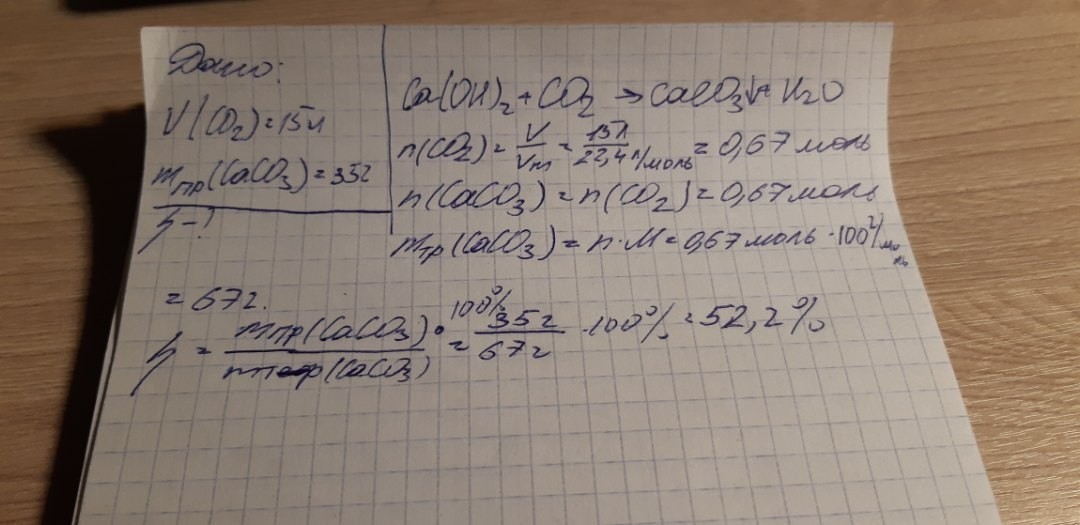 Дано:
V(CO₂)=15л
mпр(CaCO₃)=35г
η-?
Ca(OH)₂+CO₂→CaCO₃↓+H₂O
n(CO₂)=V/Vm=15л/22,4л/моль=0,67моль
n(CaCO₃)=n(CO₂)=0,67моль
mтр(CaCO₃)=n·M=0,67моль·100г/моль
=67г.
η=mпр(CaCO₃)/mтеор(CaCO₃)·100%=35г/67г·100%=52,2%